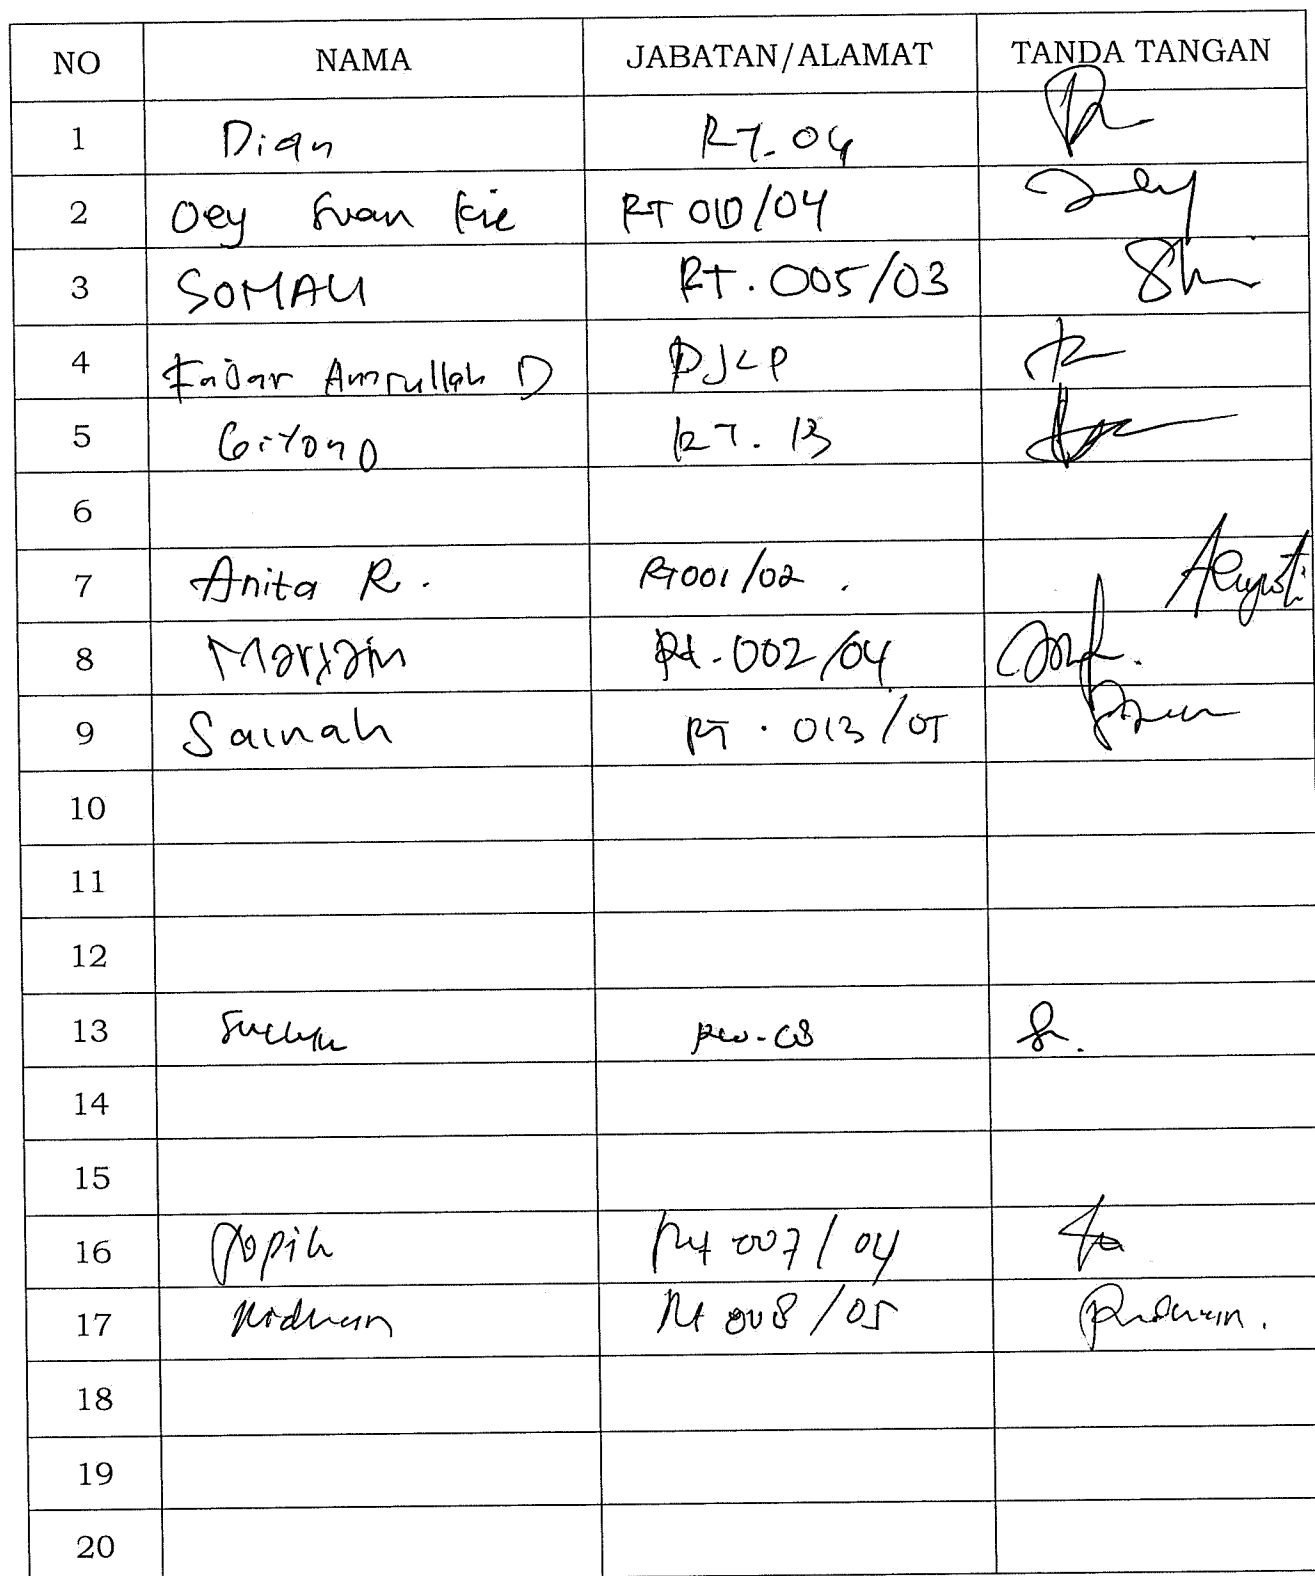 NO NAMA JABATAN/ALAMAT TANDA TANGAN
1 Dian RT. 04
2 Oey Suan Kie RT 010/04
3 SOMALI RT. 005/03
4 Fajar Amrullah D PJLP
5 Giyono RT. 13
6
7 Anita R. RT001/02.
8 Maryam Rt. 002/04
9 Sainah RT. 013/05
10
11
12
13 RW. 08
14
15
16 Rt 007/04
17 Ridwan Rt 008/05 Ridwan.
18
19
20